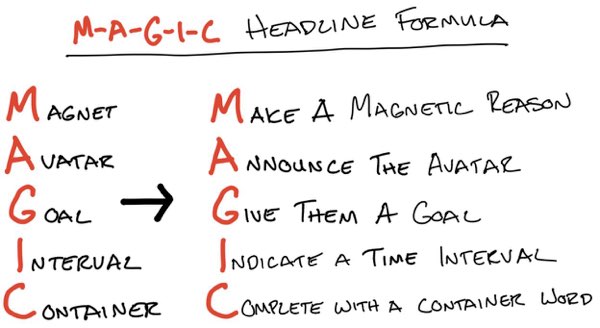 M-A-G-I-C HEADLINE FORMULA
MAGNET
AVATAR
GOAL
INTERVAL
CONTAINER
MAKE A MAGNETIC REASON
ANNOUNCE THE AVATAR
GIVE THEM A GOAL
INDICATE A TIME INTERVAL
COMPLETE WITH A CONTAINER WORD